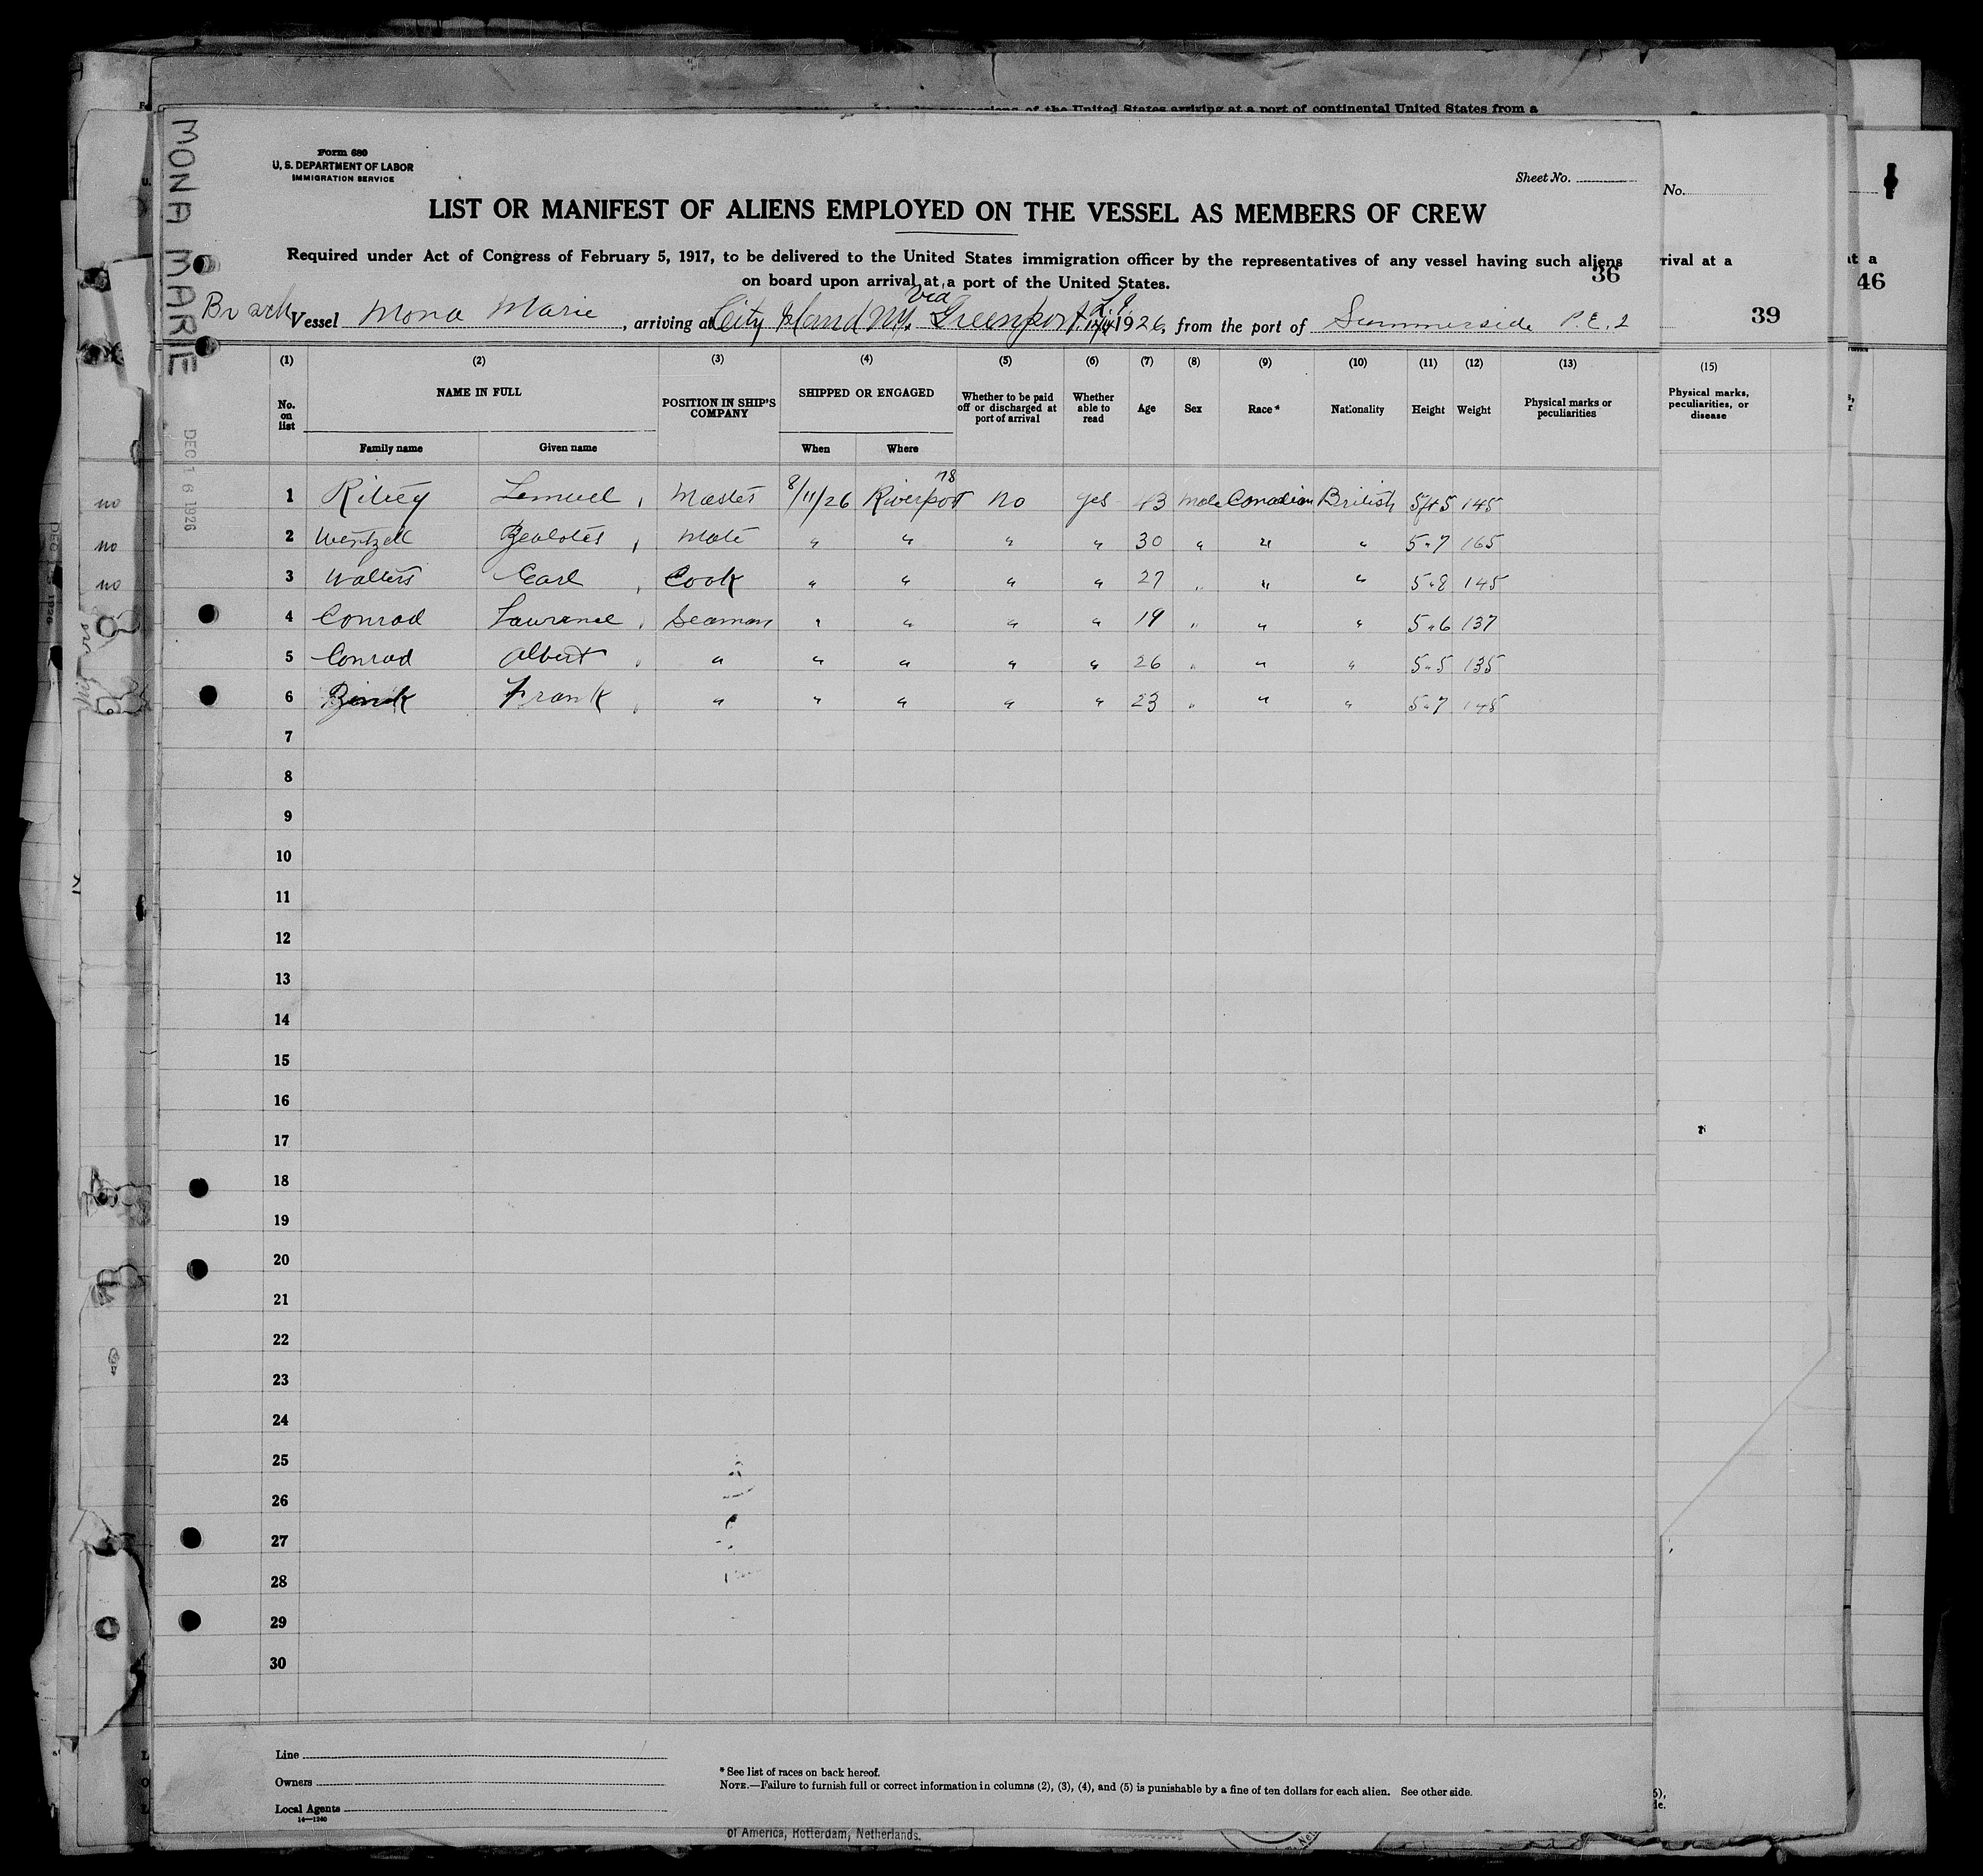 sions of the United States arriving at a port of continental United States from a
MONA MARIE
Form 680
U. S. DEPARTMENT OF LABOR
IMMIGRATION SERVICE
Sheet No.
No.
LIST OR MANIFEST OF ALIENS EMPLOYED ON THE VESSEL AS MEMBERS OF CREW
Required under Act of Congress of February 5, 1917, to be delivered to the United States immigration officer by the representatives of any vessel having such aliens
on board upon arrival at a port of the United States.
36
rival at a
39
at a
46
Vessel Mona Marie, arriving at City Island NY. via Greenport L.I. 1926, from the port of Summerside P.E.I
(1) (2) (3) (4) (5) (6) (7) (8) (9) (10) (11) (12) (13) (15)
No. on list NAME IN FULL POSITION IN SHIP'S COMPANY SHIPPED OR ENGAGED Whether to be paid off or discharged at port of arrival Whether able to read Age Sex Race* Nationality Height Weight Physical marks or peculiarities Physical marks, peculiarities, or disease
Family name Given name When Where
DEC 16 1926
no 1 Lemuel Master 8/11/26 Riverport NS no yes 43 Male Canadian British 5ft 5 145
no 2 Wentzell Mate " " " " 30 " " " 5 " 7 165
no 3 Walters Earl Cook " " " " 27 " " " 5 " 8 145
4 Conrad Lawrence Seaman " " " " 19 " " " 5 " 6 137
5 Conrad Albert " " " " " 26 " " " 5 " 5 135
6 Frank " " " " " 23 " " " 5 " 7 148
7
8
9
10
11
12
13
14
15
16
17
18
19
20
21
22
23
24
25
26
27
28
29
30
Line
Owners
Local Agents
14—1240
* See list of races on back hereof.
NOTE.—Failure to furnish full or correct information in columns (2), (3), (4), and (5) is punishable by a fine of ten dollars for each alien. See other side.
of America, Rotterdam, Netherlands.